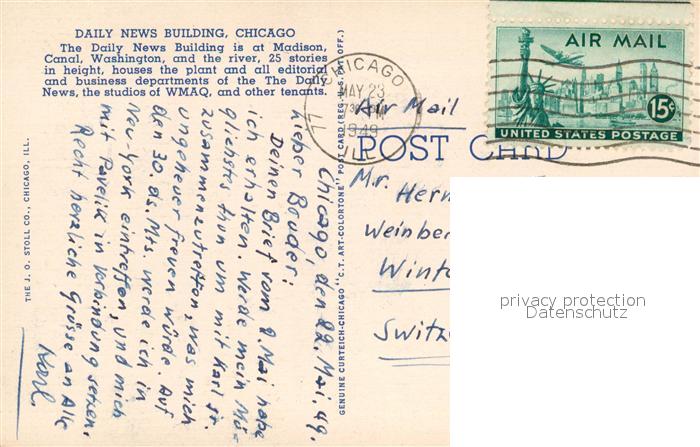 DAILY NEWS BUILDING, CHICAGO
The Daily News Building is at Madison,
Canal, Washington, and the river, 25 stories
in height, houses the plant and all editorial
and business departments of the The Daily
News, the studios of WMAQ, and other tenants.
Chicago, den 22. Mai, 49.
Lieber Bruder:
Deinen Brief vom 8. Mai habe
ich erhalten. Werde mein Mög-
glichstes thun um mit Karl jr.
zusammenzutreffen, was mich
ungeheuer freuen würde. Auf
den 30. ds. Mts. werde ich in
New-York eintreffen, und mich
mit Pavelik in Verbindung setzen.
Recht herzliche Grüsse an Alle
Karl.
THE J. O. STOLL CO., CHICAGO, ILL.
GENUINE CURTEICH-CHICAGO "C.T. ART-COLORTONE" POST CARD (REG. U.S. PAT. OFF.)
CHICAGO
MAY 23
30 PM
1949
ILL
AIR MAIL
15¢
UNITED STATES POSTAGE
Air Mail
POST CARD
Mr. Herm
Weinber
Winte
Switz
privacy protection
Datenschutz